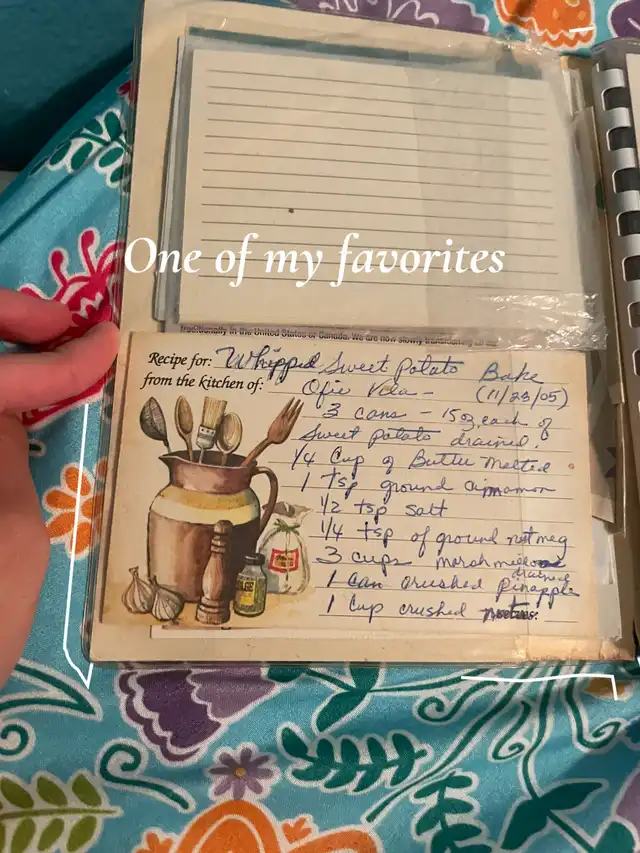 One of my favorites
traditionally in the United States or Canada. We are now slowly
Recipe for: Whipped Sweet Potato Bake
from the kitchen of: Ofie Vela - (11/23/05)
3 cans - 15oz, each of
Sweet potato drained.
1/4 Cup of Butter melted
1 tsp ground cinnamon
1/2 tsp salt
1/4 tsp of ground nutmeg
3 cups marshmellows
drained
1 can crushed pineapple
1 Cup crushed